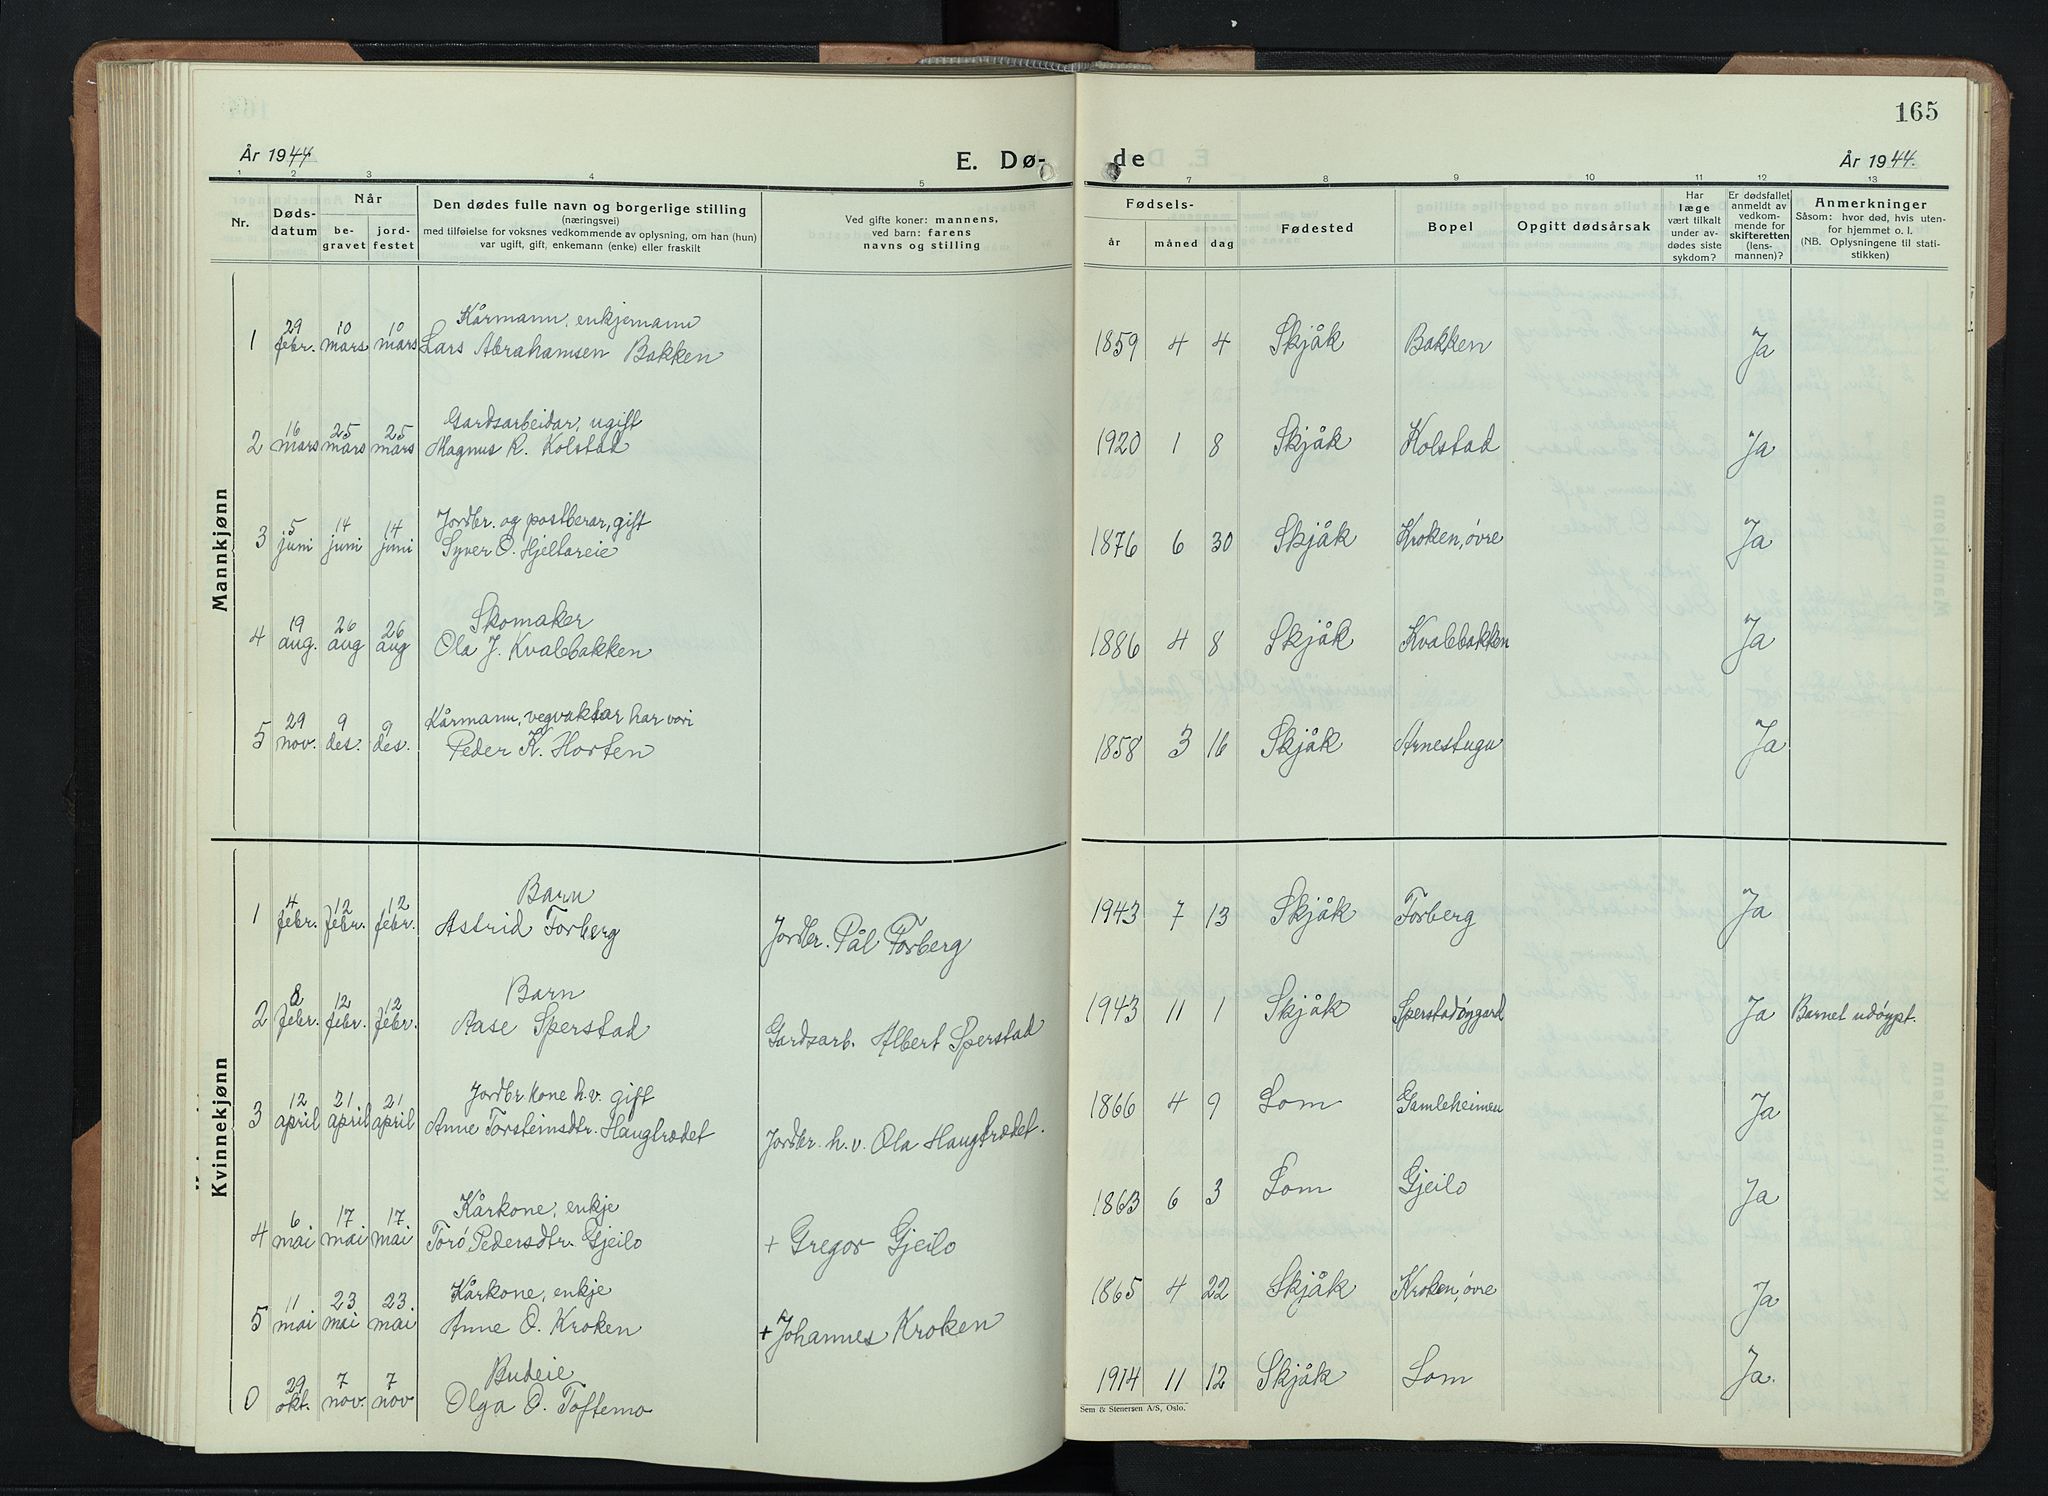 165
År 1944
E. Dø-
de
År 1944.
1 2 3 4 5 6 7 8 9 10 11 12 13
Nr.
Døds-
datum
Når
be-
gravet
jord-
festet
Den dødes fulle navn og borgerlige stilling
(næringsvei)
med tilføielse for voksnes vedkommende av oplysning, om han (hun)
var ugift, gift, enkemann (enke) eller fraskilt
Ved gifte koner: mannens,
ved barn: farens
navns og stilling
Fødsels-
år måned dag
Fødested
Bopel
Opgitt dødsårsak
Har
læge
vært tilkalt
under av-
dødes siste
sykdom?
Er dødsfallet
anmeldt av
vedkom-
mende for
skifteretten
(lens-
mannen)?
Anmerkninger
Såsom: hvor død, hvis uten-
for hjemmet o. l.
(NB. Oplysningene til stati-
stikken)
Mannkjønn
Kårmann, enkjemann
1 29 febr. 10 mars 10 mars Lars Abrahamsen Bakken 1859 4 4 Skjåk Bakken Ja
Gardsarbeidar, ugift
2 16 mars 25 mars 25 mars Magnus R. Kolstad 1920 1 8 Skjåk Kolstad Ja
Jordbr. og postberar, gift
3 5 juni 14 juni 14 juni Syver O. Hjeltareie 1876 6 30 Skjåk Kroken, øvre Ja
Skomaker
4 19 aug. 26 aug 26 aug Ola J. Kvalebakken 1886 4 8 Skjåk Kvalebakken Ja
Kårmann, vegvaktar har vori
5 29 nov. 9 des. 9 des. Peder K. Horten 1858 3 16 Skjåk Arnestugu Ja
Kvinnekjønn
Barn
1 4 febr. 12 febr. 12 febr. Astrid Forberg Jordbr. Pål Forberg 1943 7 13 Skjåk Forberg Ja
Barn
2 8 febr. 12 febr. 12 febr. Aase Sperstad Gardsarb. Albert Sperstad 1943 11 1 Skjåk Sperstadøygard Ja Barnet udøypt.
Jordbr kone h.v. gift
3 12 april 21 april 21 april Anne Torsteinsdtr. Haugtrædet Jordbr. h.v. Ola Haugtrædet. 1866 4 9 Lom Gamleheimen Ja
Kårkone, enkje
4 6 mai 17 mai 17 mai Torø Pedersdtr. Gjeilo + Gregor Gjeilo 1863 6 3 Lom Gjeilo Ja
Kårkone, enkje
5 11 mai 23 mai 23 mai Anne O. Kroken + Johannes Kroken 1865 4 22 Skjåk Kroken, øvre Ja
Budeie
0 29 okt. 7 nov. 7 nov Olga O. Toftemo 1914 11 12 Skjåk Lom Ja.
Sem & Stenersen A/S, Oslo.